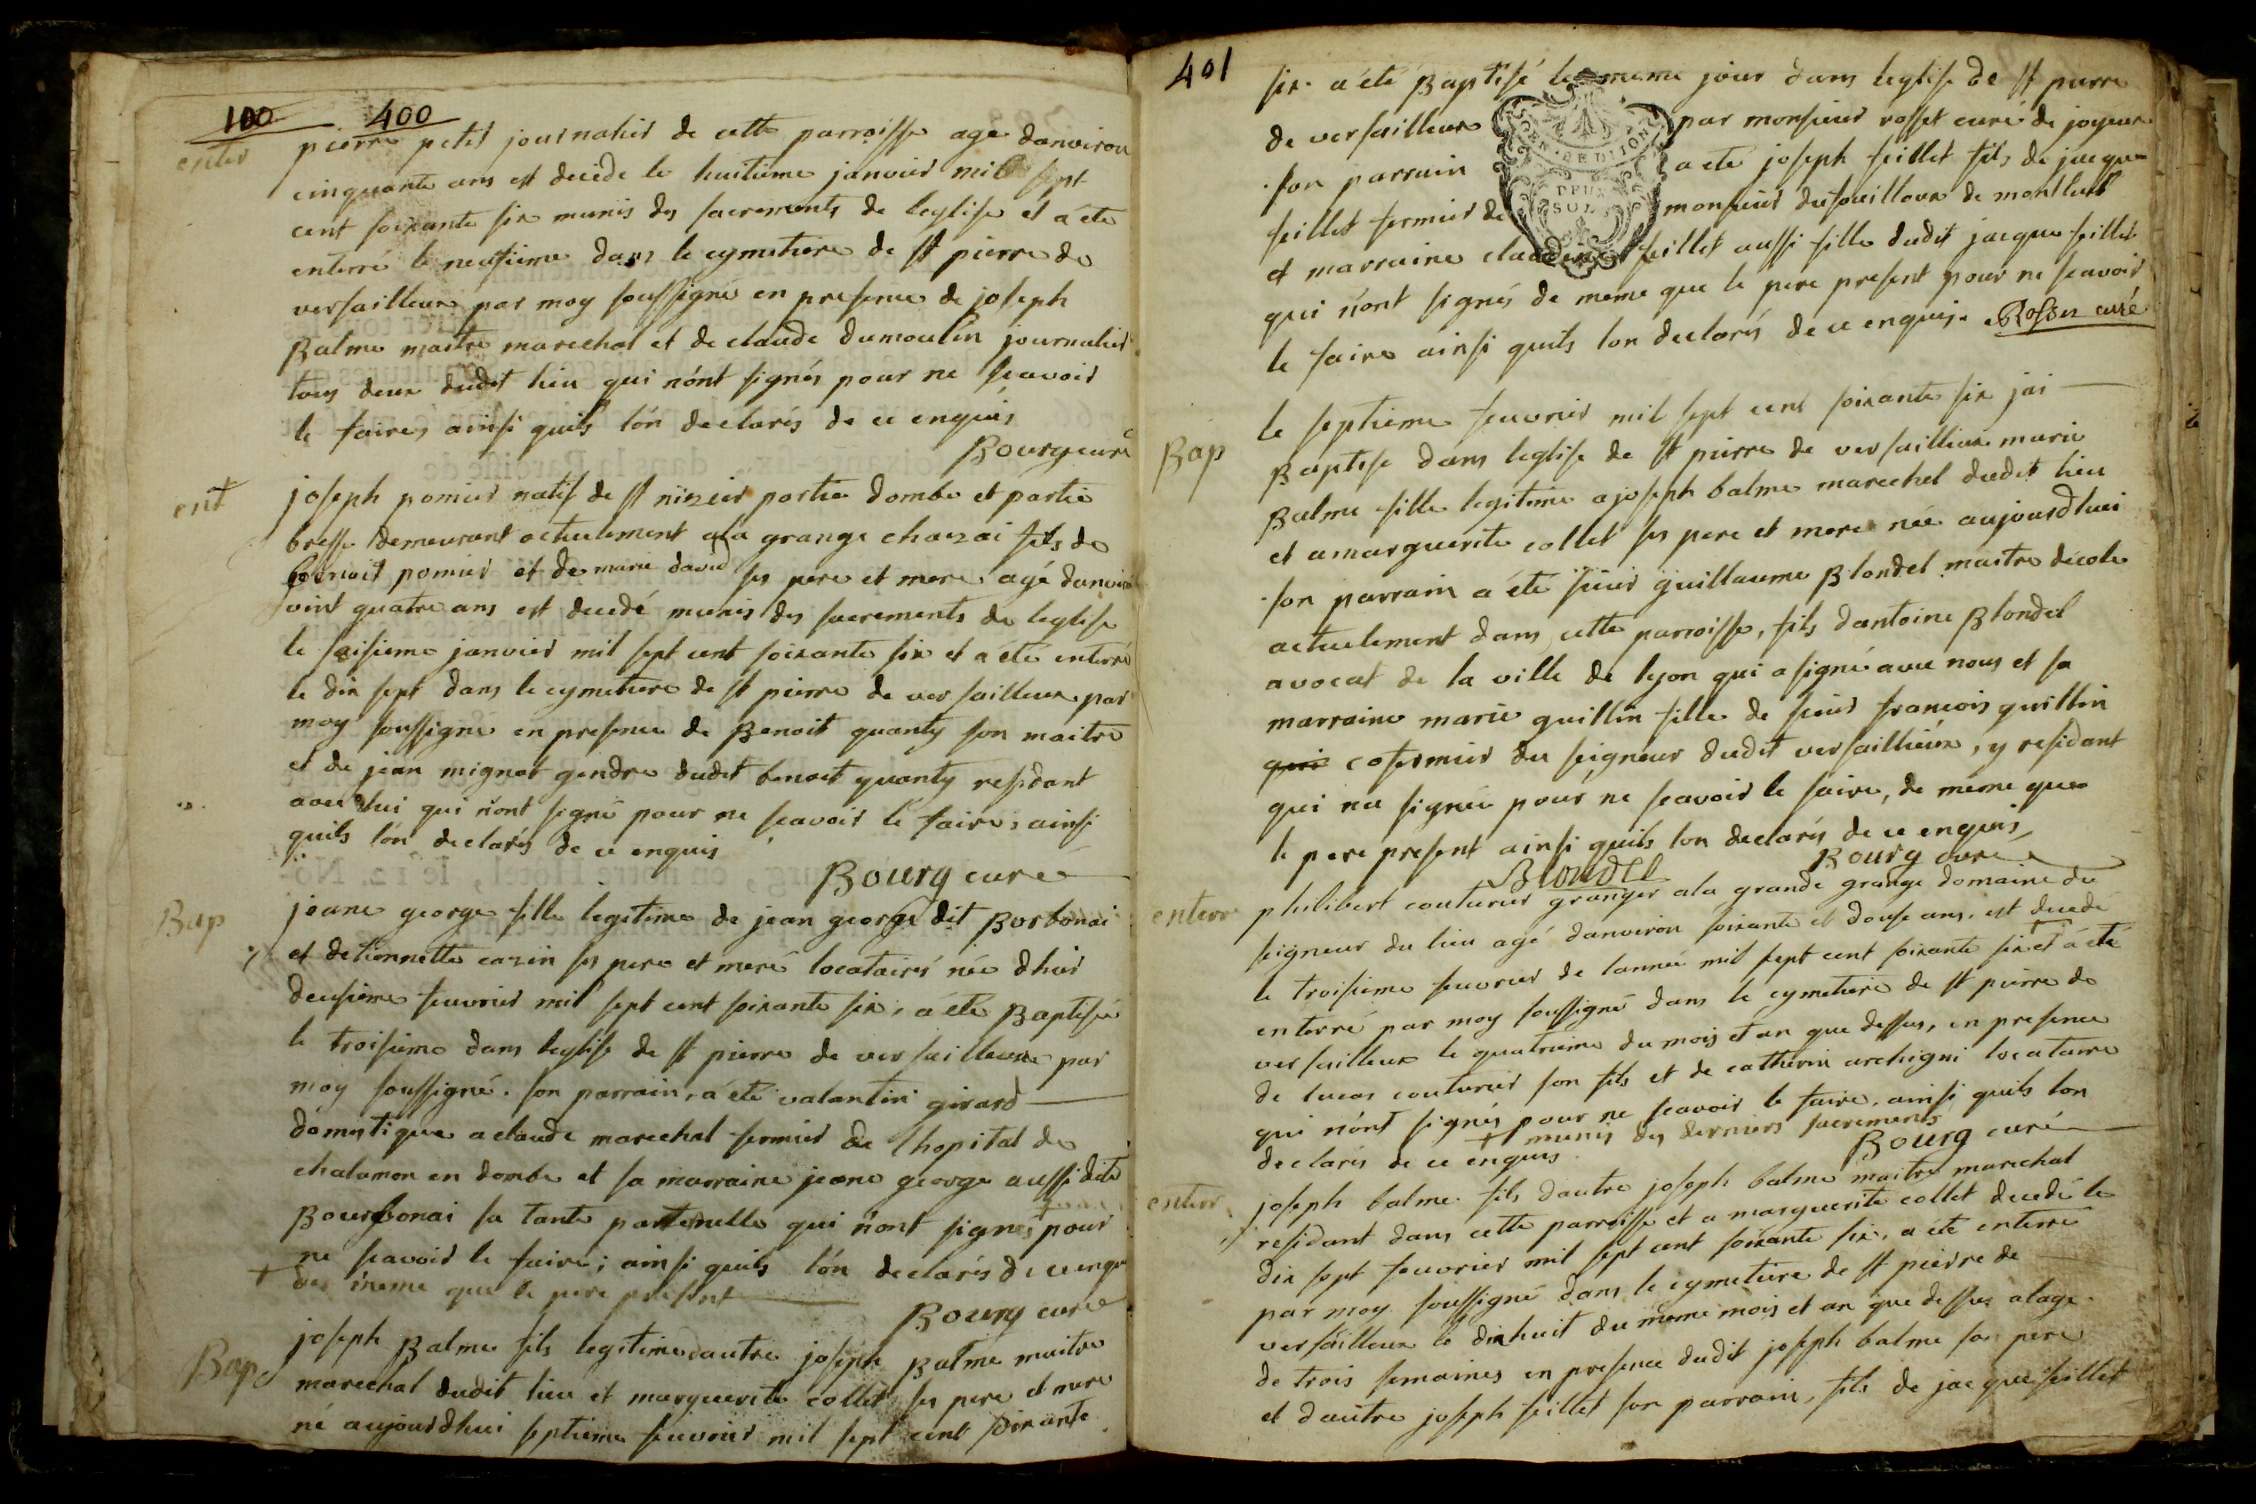 100 400
enter
pierre petit journalier de cette parroisse age danviron
cinquante ans est decede le huitieme janvier mil sept
cent soixante six munis des sacrements de leglise et a été
enterré le neufieme dans le cymetiere de st pierre de
versailleux par moy soussigné en presence de joseph
Balme maitre marechal et de claude dumoulin journalier
tous deux dudit lieu qui nónt signés pour ne scavoir
le faire, ainsi quils lón declarés de ce enquis
Bourg curé
ent
joseph pomier natif de st nizier partie dombe et partie
bresse demeurant actuelement ala grange chazai fils de
benoit pomier et de marie david ses pere et mere agé danviron
vint quatre ans est decedé munis des sacrements de leglise
le saisieme janvier mil sept cent soixante six et a été enterré
le dix sept dans le cymetiere de st pierre de versailleux par
moy soussigné en presence de Benoit quanty son maitre
et de jean mignot gendre dudit benoit quanty residant
avec lui qui nónt signé pour ne scavoir le faire, ainsi
quils lón declarés de ce enquis
Bourg curé
Bap
jeane george fille legitime de jean george dit Borbonai
et detiennette cazin ses pere et meré locataires née dhier
deusieme feuvrier mil sept cent soixante six, a été Baptisée
le troisieme dans leglise de st pierre de versailleux par
moy soussigné. son parrain, a été valantin girard
domestique a claude marechal fermier de lhopital de
chalamon en dombe et sa marraine jeane george aussi dite
Bourbonai sa tante paternelle qui nónt signés pour
ne scavoir le faire; ainsi quils lón declarés de ce enquis
+ de meme que le pere present
Bourg curé
Bap
joseph Balme fils legitime dautre joseph Balme maitre
marechal dudit lieu et marguerite collet ses pere et mere
né aujourdhui septieme feuvrier mil sept cent soixante
401
six. a été Baptisé le meme jour dans leglise de st pierre
de versailleux par monsieur rosset curé de joyeux
son parrain a eté joseph feillet fils de jacque
feillet fermier de monsieur dufouilloux de montluel
et marraine claudine feillet aussi fille dudit jacque feillet
qui nónt signés de meme que le pere present pour ne scavoir
le faire ainsi quils lon declarés de ce enquis. Rosset curé
GEN. DE DIJON
DEUX
SOLS
Bap
le septieme feuvrier mil sept cent soixante six jai
Baptise dans leglise de st pierre de versaillieux marie
Balme fille legitime a joseph balme marechal dudit lieu
et a marguerite collet ses pere et mere née aujourdhui
son parrain a été sieur guillaume Blondel maitre decole
actuelement dans cette parroisse, fils dantoine Blondel
avocat de la ville de lyon qui a signé avec nous et sa
marraine marie guillin fille de sieur francois guillin
qui cofermier du seigneur dudit versaillieux, y residant
qui na signée pour ne scavoir le faire, de meme que
le pere present ainsi quils lon declarés de ce enquis,
Blondel Bourg curé
enterr
philibert couturier granger ala grande grange domaine du
seigneur du lieu agé danviron soixante et douse ans. est decedé
le troisieme feuvrier de lannée mil sept cent soixante six et a été
enterré par moy soussigné dans le cymetiere de st pierre de
versailleux le quatrieme du mois et an que dessus, en presence
de lucas couturier son fils et de catherin archigni locataire
qui nónt signés pour ne scavoir le faire. ainsi quils lon
declarés de ce enquis + munis des derniers sacrements
Bourg curé
enterr
joseph balme. fils dautre joseph balme maitre marechal
residant dans cette parroisse et a marguerite collet decedé le
dix sept feuvrier mil sept cent soixante six, a eté enterré
par moy soussigné dans le cymetiere de st pierre de
versailleux le dixhuit du meme mois et an que dessus alage
de trois semaines en presence dudit joseph balme son pere
et dautre joseph feillet son parrain, fils de jacque feillet